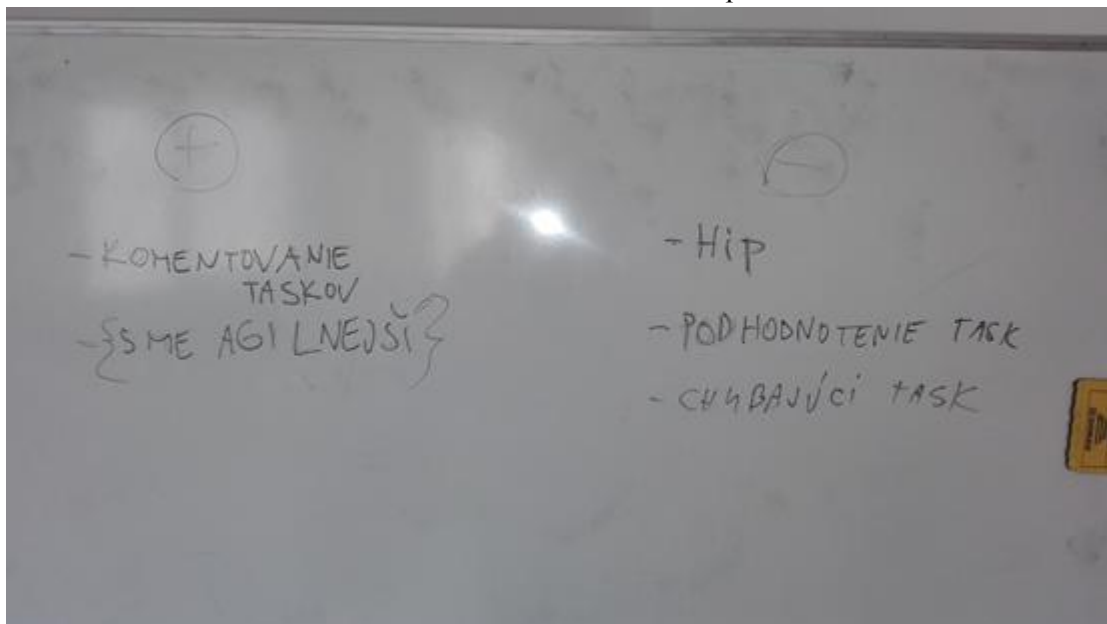 +
- KOMENTOVANIE
TASKOV
- {SME AGILNEJŠÍ}
−
- Hip
- PODHODNOTENIE TASK
- CHYBAJÚCI TASK